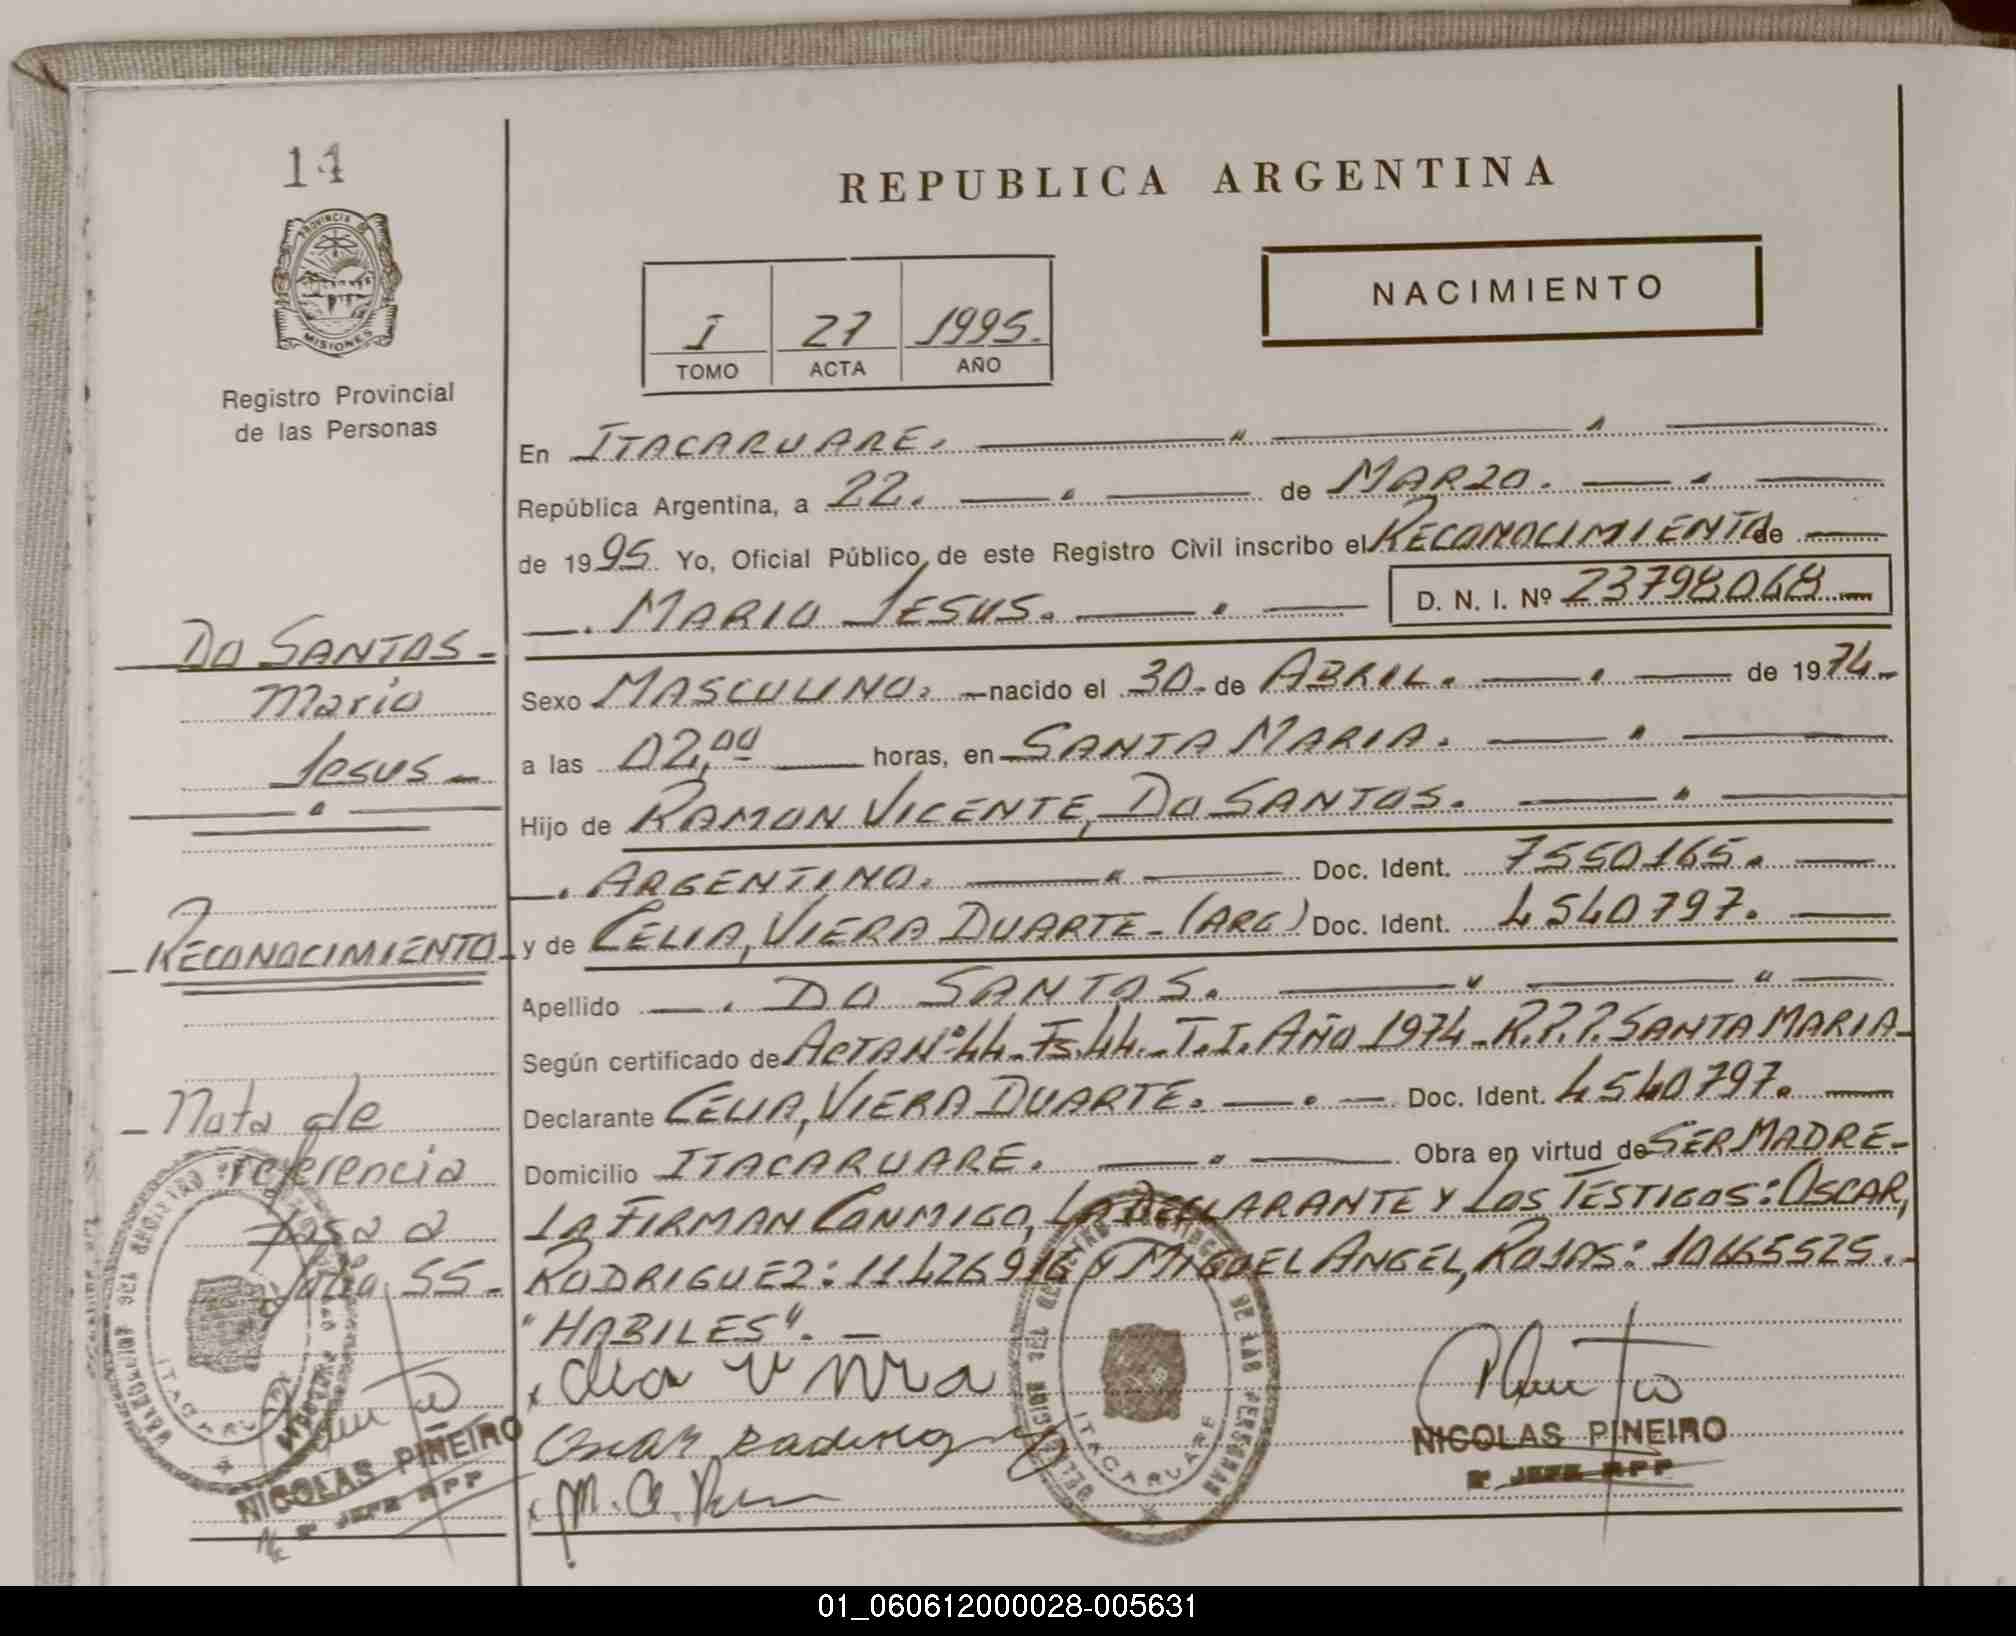 14
PROVINCIA DE
MISIONES
Registro Provincial
de las Personas
REPUBLICA ARGENTINA
NACIMIENTO
I 27 1995.
TOMO ACTA AÑO
En ITACARUARE.
República Argentina, a 22. de MARZO.
de 1995. Yo, Oficial Público de este Registro Civil inscribo el RECONOCIMIENTO de
MARIO JESUS. D. N. I. Nº 23798068
Sexo MASCULINO. nacido el 30 de ABRIL. de 1974
a las 02,00 horas, en SANTA MARIA.
Hijo de RAMON VICENTE, DO SANTOS.
ARGENTINO. Doc. Ident. 7550165.
y de CELIA, VIERA DUARTE - (ARG) Doc. Ident. 4540797.
Apellido DO SANTOS.
Según certificado de ACTA Nº 44 - Fs. 44. - T. I. AÑO 1974 - R.P.P. SANTA MARIA
Declarante CELIA, VIERA DUARTE. Doc. Ident. 4540797.
Domicilio ITACARUARE. Obra en virtud de SER MADRE-
LA FIRMAN CONMIGO, LA DECLARANTE Y LOS TESTIGOS: OSCAR,
RODRIGUEZ: 11426916 Y MIGUEL ANGEL, ROJAS: 10665525.-
"HABILES". -
DO SANTOS -
Mario
Jesus -
- RECONOCIMIENTO -
- Nota de
referencia
pasa a
folio 55 -
ITACARUARE
NICOLAS PINEIRO
JEFE RPP
Oscar Rodriguez
DE LAS PERSONAS
ITACARUARE
NICOLAS PINEIRO
JEFE RPP
01_060612000028-005631